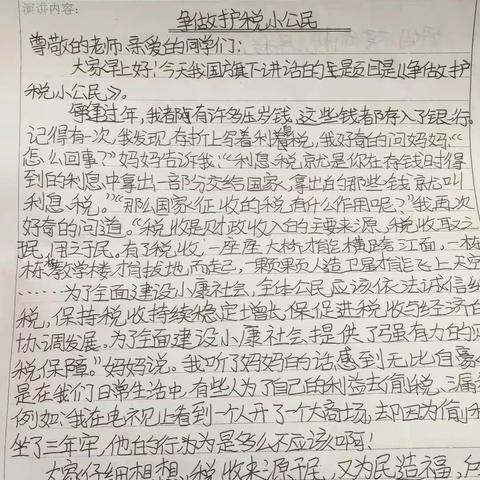 演讲内容:
争做护税小公民
尊敬的老师,亲爱的同学们:
大家早上好!今天我国旗下讲话的题目是《争做护
税小公民》。
每逢过年,我都有许多压岁钱,这些钱都存入了银行。
记得有一次,我发现存折上写着利息税,我好奇的问妈妈:“
怎么回事?”妈妈告诉我:“利息税就是你在存钱时得
到的利息中拿出一部分交给国家,拿出的那些钱就叫
利息税。”“那么国家征收的税有什么作用呢?”我再次
好奇的问道。“税收是财政收入的主要来源,税收取之
民,用之于民。有了税收一座座大桥才能横跨江面,一栋
栋教学楼才能拔地而起,一颗颗人造卫星才能飞上天空
……为了全面建设小康社会,全体公民应该依法诚信纳
税,保持税收持续稳定增长,保促进税收与经济的
协调发展。为了全面建设小康社会提供了强有力的
税保障。”妈妈说。我听了妈妈的话感到无比自豪
是在我们日常生活中,有些人为了自己的利益去偷税、漏
例如:我在电视上看到一个人开了个大商场,却因为偷
坐了三年牢,他的行为是多么不应该啊!
大家仔细想想,税收来源于民,又为民造福,